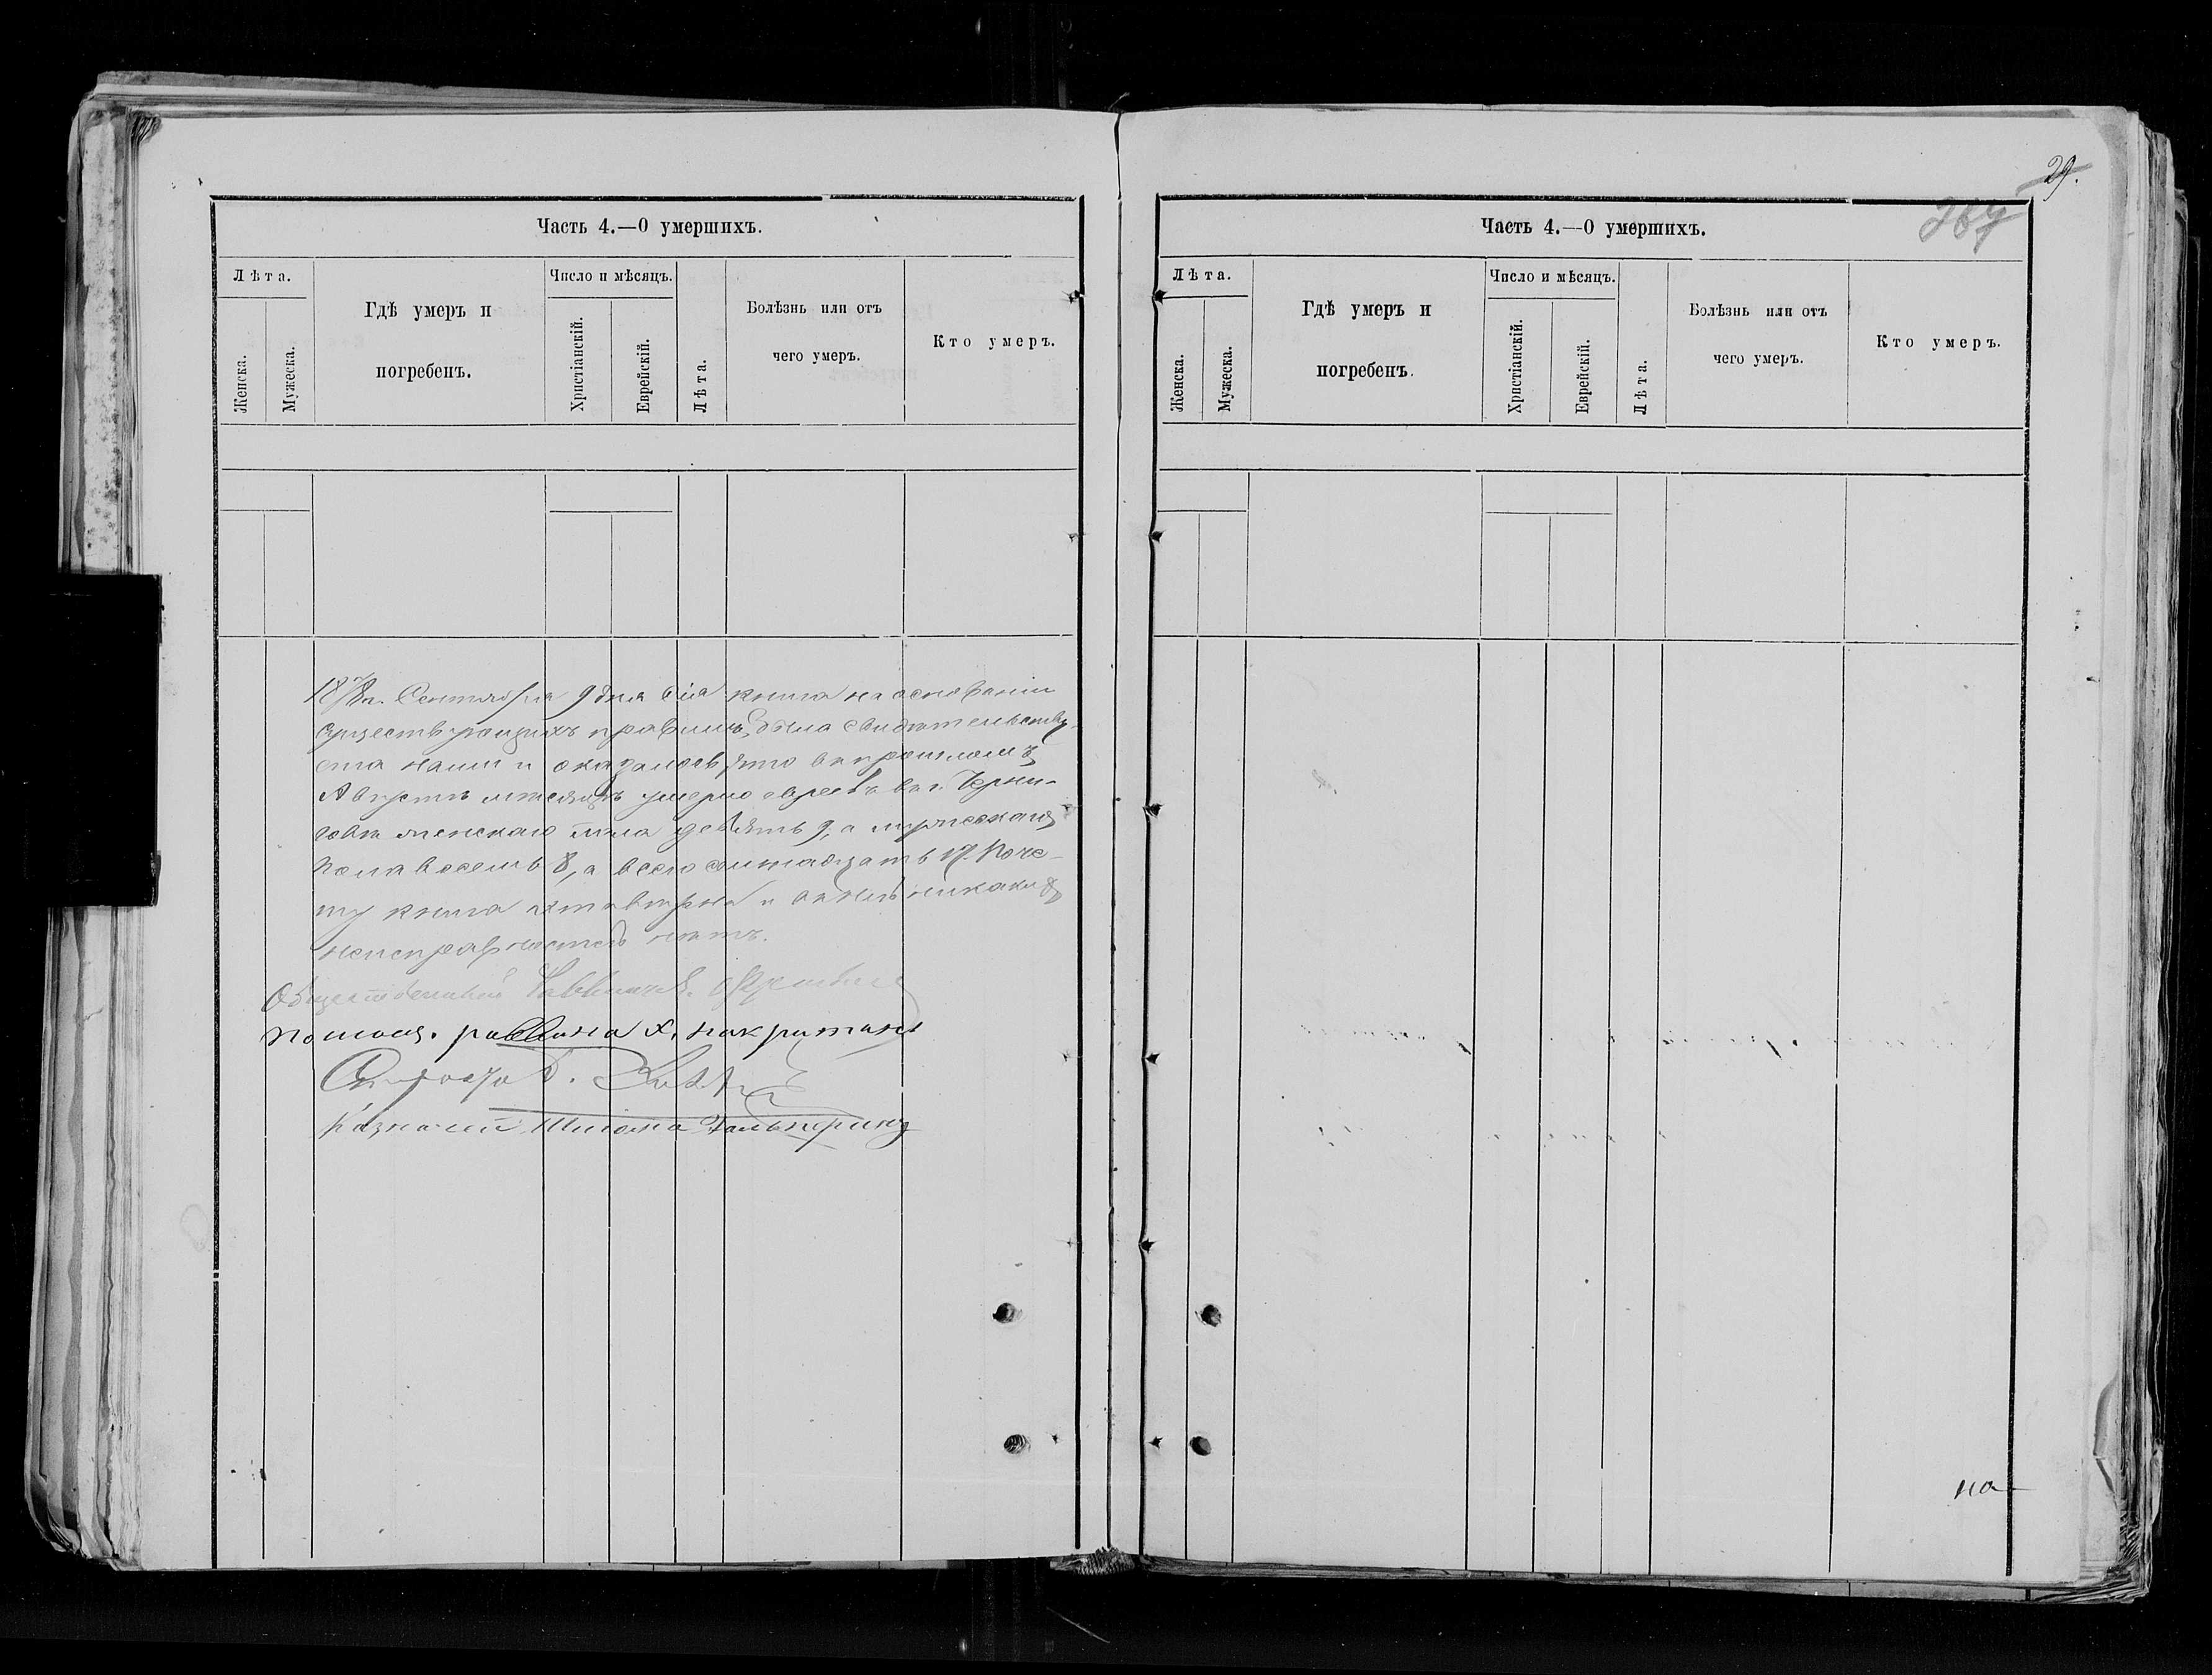 Часть 4.—О умершихъ.
Лѣта.
Женска.
Мужеска.
Гдѣ умеръ и
погребенъ.
Число и мѣсяцъ.
Христіанскій.
Еврейскій.
Лѣта.
Болѣзнь или отъ
чего умеръ.
Кто умеръ.
Сентября 9 дня сія книга на основаніи
существующихъ правилъ, была свидѣтельству-
ема нами и оказалось что въ прошломъ
Августѣ мѣсяцѣ умерло евреевъ въ г. Черни-
говѣ женскаго пола девять 9, а мужескаго
пола восемь 8, а всего семнадцать 17. Поче-
му книга эта вѣрна и въ ней никакихъ
неисправностей нѣтъ.
Общественный Раввинъ
Помощ. раввина Х.
Староста
Казначей Шлома Гальперинъ
29.
Часть 4.—О умершихъ.
Лѣта.
Женска.
Мужеска.
Гдѣ умеръ и
погребенъ.
Число и мѣсяцъ.
Христіанскій.
Еврейскій.
Лѣта.
Болѣзнь или отъ
чего умеръ.
Кто умеръ.
на